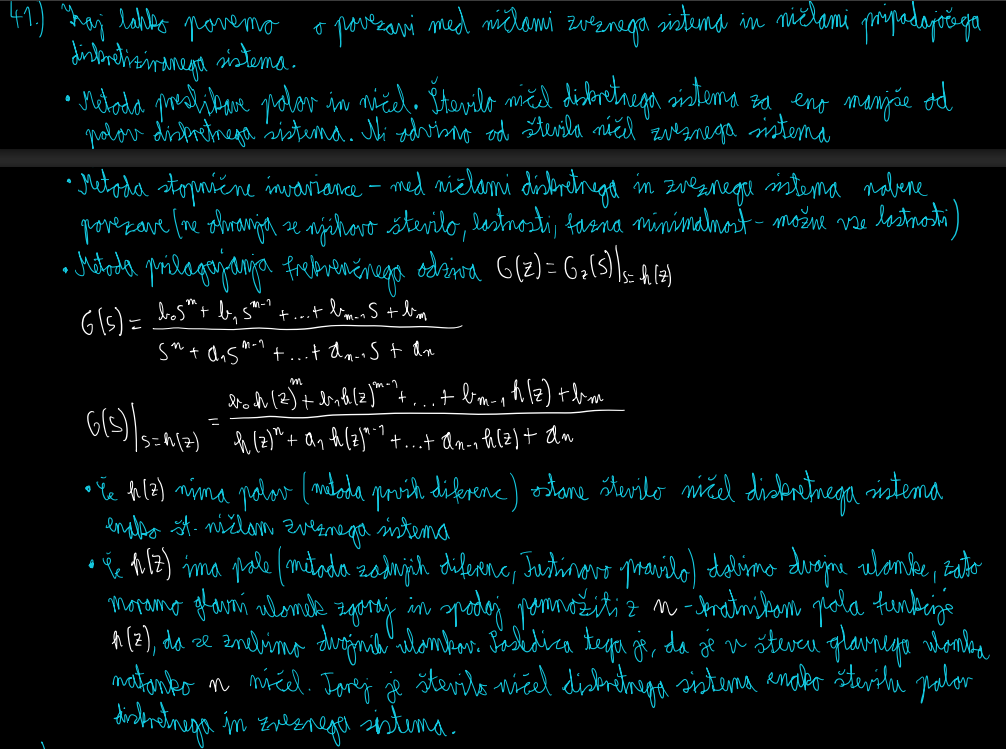 41.) Kaj lahko povemo o povezavi med ničlami zveznega sistema in ničlami pripadajočega
diskretiziranega sistema.
• Metoda preslikave polov in ničel. Število ničel diskretnega sistema za eno manjše od
polov diskretnega sistema. Ni odvisno od števila ničel zveznega sistema
• Metoda stopnične invariance - med ničlami diskretnega in zveznega sistema nobene
povezave (ne ohranja se njihovo število, lastnosti, fazna minimalnost - možne vse lastnosti)
• Metoda prilagajanja frekvenčnega odziva G(z) = G_z(s)|_{s=h(z)}
G(s) = \frac{b_0 s^m + b_1 s^{m-1} + ... + b_{m-1} s + b_m}{s^n + a_1 s^{n-1} + ... + a_{n-1} s + a_n}
G(s)|_{s=h(z)} = \frac{b_0 h(z)^m + b_1 h(z)^{m-1} + ... + b_{m-1} h(z) + b_m}{h(z)^n + a_1 h(z)^{n-1} + ... + a_{n-1} h(z) + a_n}
• Če h(z) nima polov (metoda prvih diferenc) ostane število ničel diskretnega sistema
enako št. ničlam zveznega sistema
• Če h(z) ima pole (metoda zadnjih diferenc, Tustinovo pravilo) dobimo dvojne ulomke, zato
moramo glavni ulomek zgoraj in spodaj pomnožiti z n-kratnikom pola funkcije
h(z), da se znebimo dvojnih ulomkov. Posledica tega je, da je v števcu glavnega ulomka
natanko n ničel. Torej je število ničel diskretnega sistema enako številu polov
diskretnega in zveznega sistema.